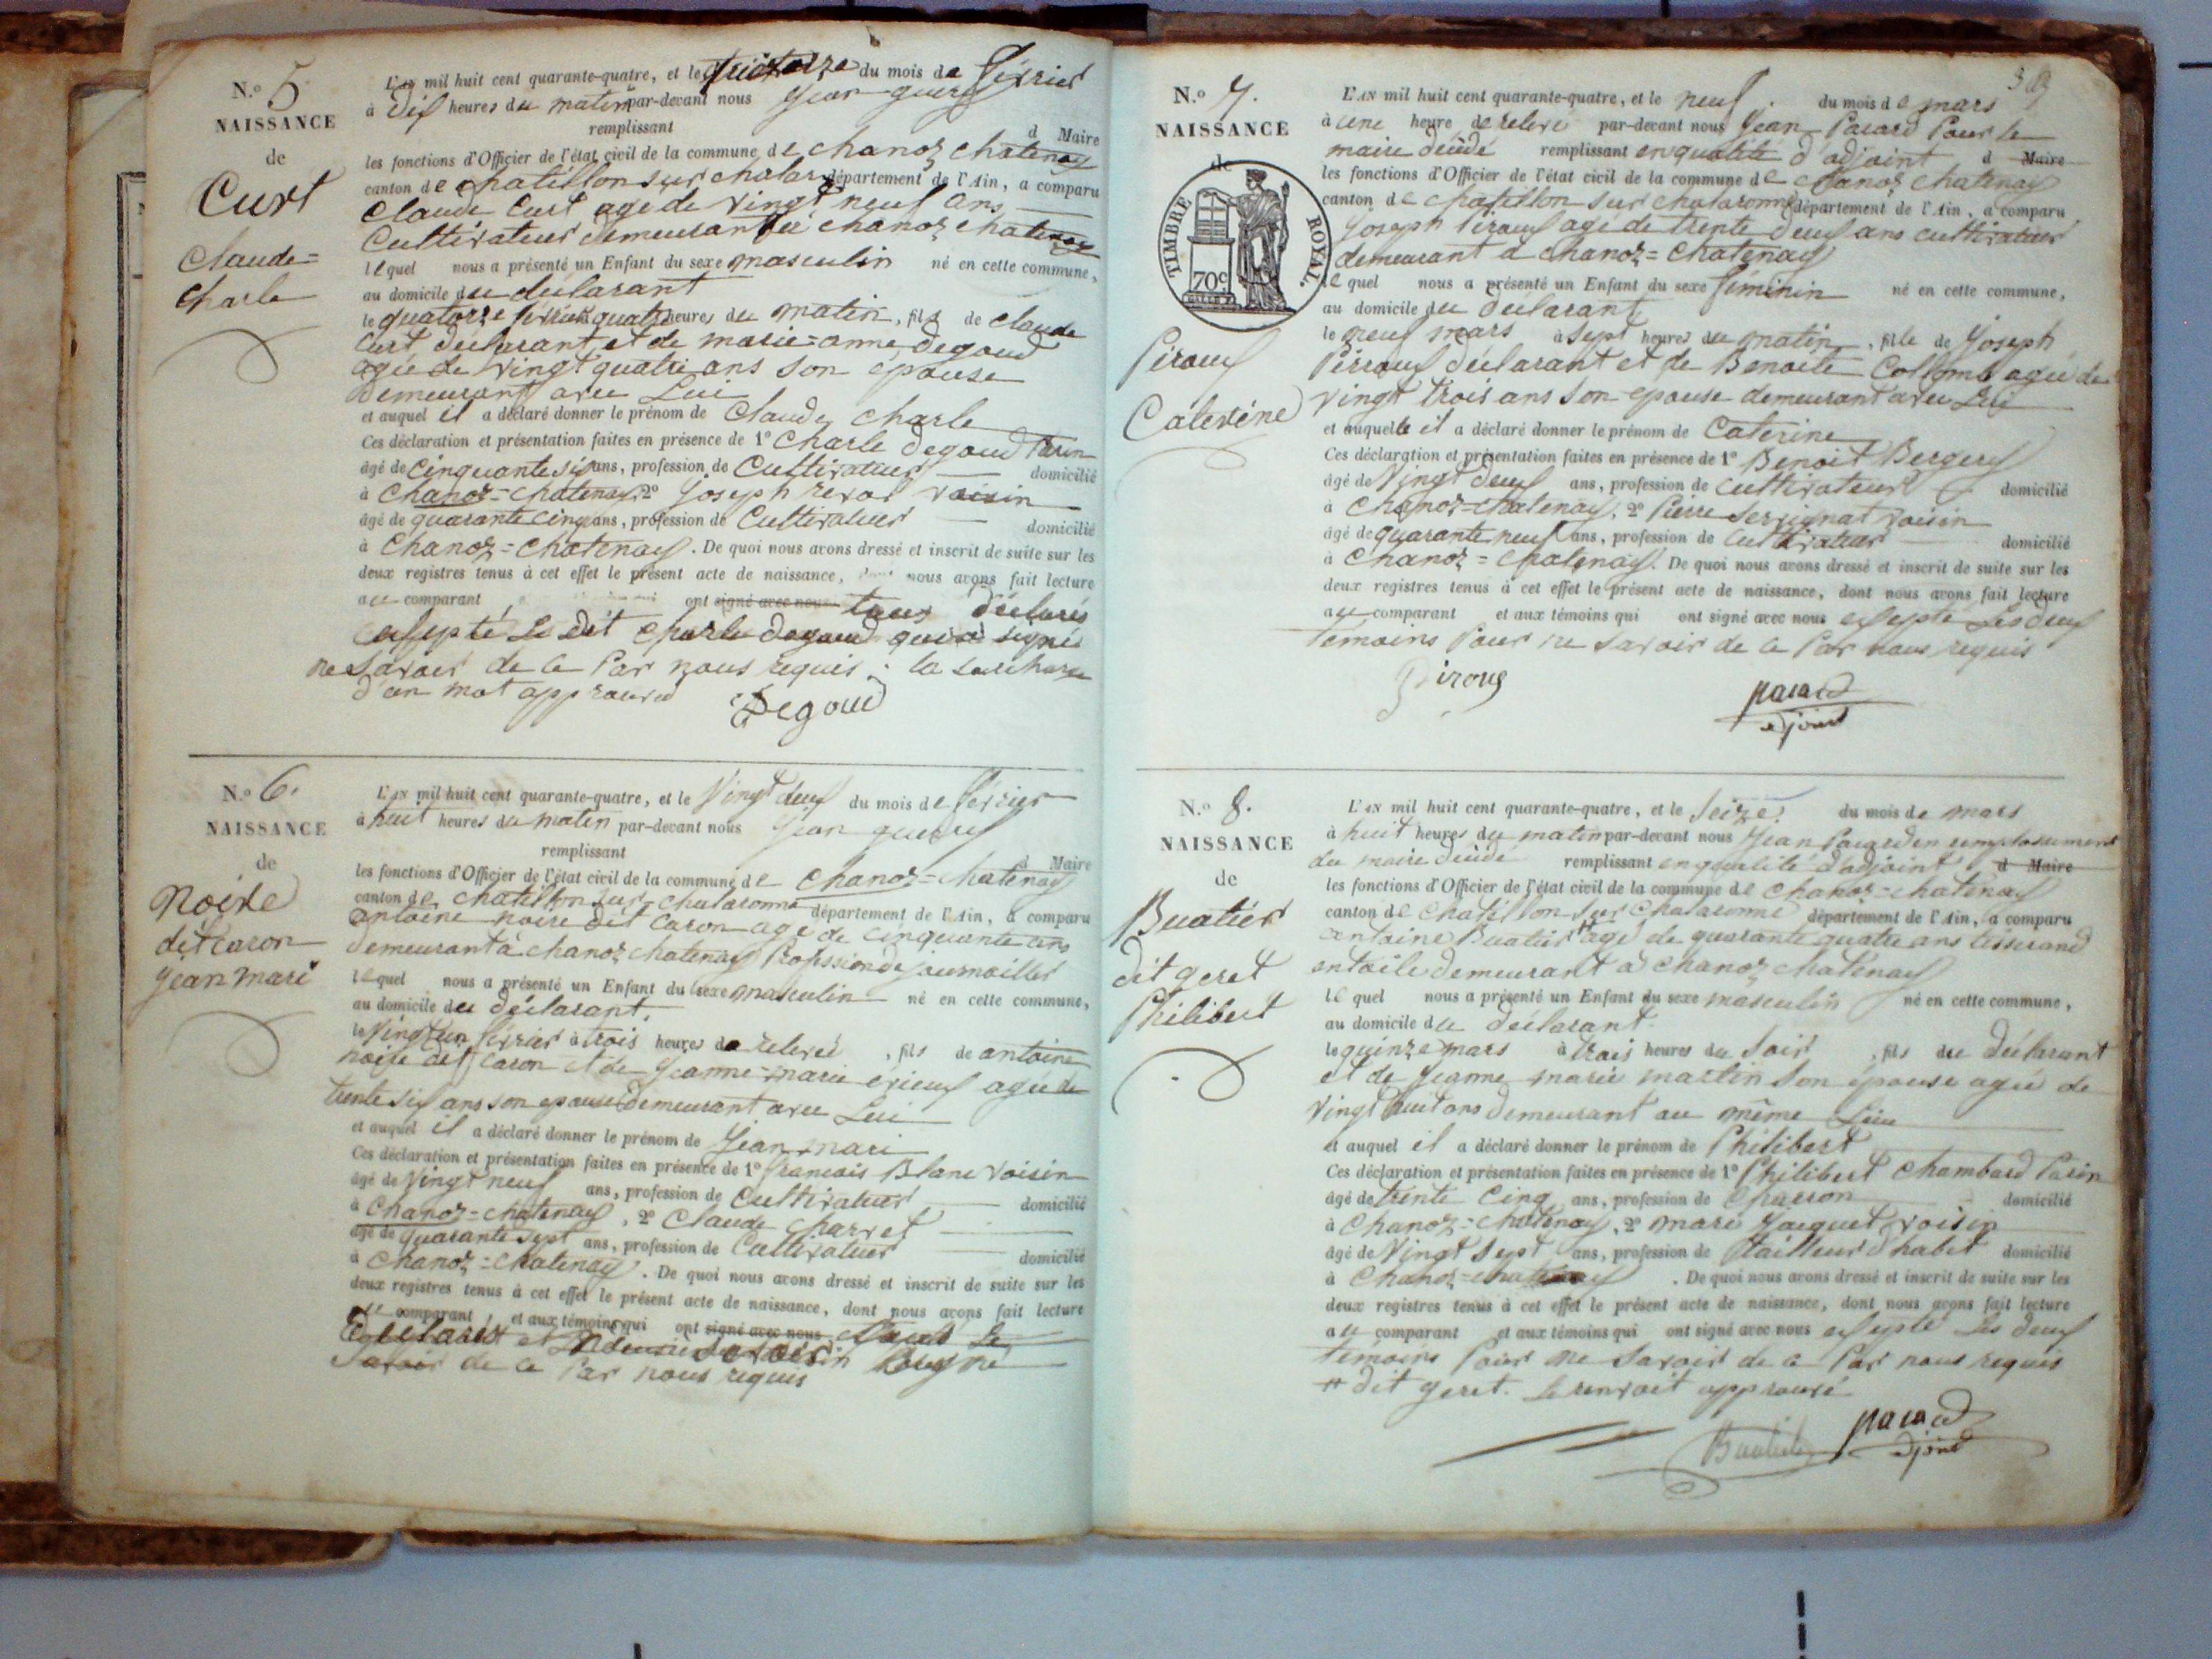 N.º 5
NAISSANCE
de
Curt
Claude=
Charle
L'AN mil huit cent quarante-quatre, et le du mois de février
à dix heures du matin par-devant nous Jean
remplissant d Maire
les fonctions d'Officier de l'état civil de la commune de Chanoz Chatenay
canton de Chatillon sur Chalar département de l'Ain, a comparu
Claude Curt agé de vingt neuf ans
Cultivateur demeurant à Chanoz Chatenay
lequel nous a présenté un Enfant du sexe masculin né en cette commune,
au domicile du declarant
le quatorze février à quatre heures du matin, fils de Claude
Curt declarant et de marie=anne degoud
agée de vingt quatre ans son épouse
demeurant avec Lui
et auquel il a déclaré donner le prénom de Claude Charle
Ces déclaration et présentation faites en présence de 1º Charle degoud Parin
âgé de Cinquante six ans, profession de Cultivateur domicilié
à Chanoz=Chatenay, 2º Joseph revor voisin
âgé de quarante cinq ans, profession de Cultivateur domicilié
à Chanoz=Chatenay. De quoi nous avons dressé et inscrit de suite sur les
deux registres tenus à cet effet le présent acte de naissance, dont nous avons fait lecture
au comparant ont signé avec nous tous déclarés
exsepté Le dit Charle degoud qui a signé
ne Savoir de ce Par nous requis. la surcharge
d'un mot approuvé
Degoud
N.º 6.
NAISSANCE
de
Noire
dit Caron
Jean mari
L'AN mil huit cent quarante-quatre, et le Vingt deux du mois de février
à huit heures du matin par-devant nous Jean
remplissant d Maire
les fonctions d'Officier de l'état civil de la commune de Chanoz=Chatenay
canton de Chatillon sur Chalaronne département de l'Ain, a comparu
antoine noire dit Caron agé de cinquante ans
demeurant à Chanoz Chatenay Profession de journailler
lequel nous a présenté un Enfant du sexe masculin né en cette commune,
au domicile du déclarant.
le Vingt un février à trois heures de relevée, fils de antoine
noire dit Caron et de Jeanne=marie érieux agée de
trente six ans son epouse demeurant avec Lui
et auquel il a déclaré donner le prénom de Jean mari
Ces déclaration et présentation faites en présence de 1º francois Blanc voisin
âgé de Vingt neuf ans, profession de Cultivateur domicilié
à Chanoz=Chatenay, 2º Claude Charvet
âgé de quarante sept ans, profession de Cultivateur domicilié
à Chanoz=Chatenay. De quoi nous avons dressé et inscrit de suite sur les
deux registres tenus à cet effet le présent acte de naissance, dont nous avons fait lecture
au comparant, et aux témoins qui ont signé avec nous
Savoir de ce Par nous requis
N.º 7.
NAISSANCE
de
TIMBRE ROYAL.
70c
Piroux
Caterine
L'AN mil huit cent quarante-quatre, et le neuf du mois de mars
à une heure de relevé par-devant nous Jean Pacard Pour le
maire décédé remplissant en qualité d'adjoint d Maire
les fonctions d'Officier de l'état civil de la commune de Chanoz Chatenay
canton de Chatillon sur Chalaronne département de l'Ain, a comparu
Joseph Piroux agé de trente deux ans cultivateur
demeurant à Chanoz=Chatenay
lequel nous a présenté un Enfant du sexe féminin né en cette commune,
au domicile du déclarant
le neuf mars à sept heures du matin, fille de Joseph
Pirroux déclarant et de Benoite Collomb agée de
vingt trois ans son epouse demeurant avec Lui
et auquelle il a déclaré donner le prénom de Caterine
Ces déclaration et présentation faites en présence de 1º Benoit Bergery
âgé de Vingt deux ans, profession de Cultivateur domicilié
à Chanoz=Chatenay, 2º Pierre Servignat voisin
âgé de quarante neuf ans, profession de Cultivateur domicilié
à Chanoz=Chatenay. De quoi nous avons dressé et inscrit de suite sur les
deux registres tenus à cet effet le présent acte de naissance, dont nous avons fait lecture
au comparant et aux témoins qui ont signé avec nous exsepté Les deux
témoins Pour ne Savoir de ce Par nous requis
Piroux
pacard
adjoint
N.º 8.
NAISSANCE
de
Buatier
dit geret
Philibert
L'AN mil huit cent quarante-quatre, et le Seize du mois de mars
à huit heures du matin par-devant nous Jean Pacard en remplasement
du maire décédé remplissant en qualité d'adjoint d Maire
les fonctions d'Officier de l'état civil de la commune de Chanoz=Chatenay
canton de Chatillon sur Chalaronne département de l'Ain, a comparu
antoine Buatier # agé de quarante quatre ans tisserand
en toile demeurant à Chanoz Chatenay
lequel nous a présenté un Enfant du sexe masculin né en cette commune,
au domicile du déclarant
le quinze mars à trois heures du Soir, fils du déclarant
et de Jeanne marie martin son épouse agée de
vingt huit ans demeurant au même Lieu
et auquel il a déclaré donner le prénom de Philibert
Ces déclaration et présentation faites en présence de 1º Philibert Chambard Parin
âgé de trente Cinq ans, profession de Charron domicilié
à Chanoz=Chatenay, 2º mari Jacquet voisin
âgé de Vingt Sept ans, profession de tailleur d'habit domicilié
à Chanoz=Chatenay. De quoi nous avons dressé et inscrit de suite sur les
deux registres tenus à cet effet le présent acte de naissance, dont nous avons fait lecture
au comparant et aux témoins qui ont signé avec nous exsepté Les deux
témoins Pour ne Savoir de ce Par nous requis
# dit geret. Le renvoit approuvé
Buatier
pacard
adjoint